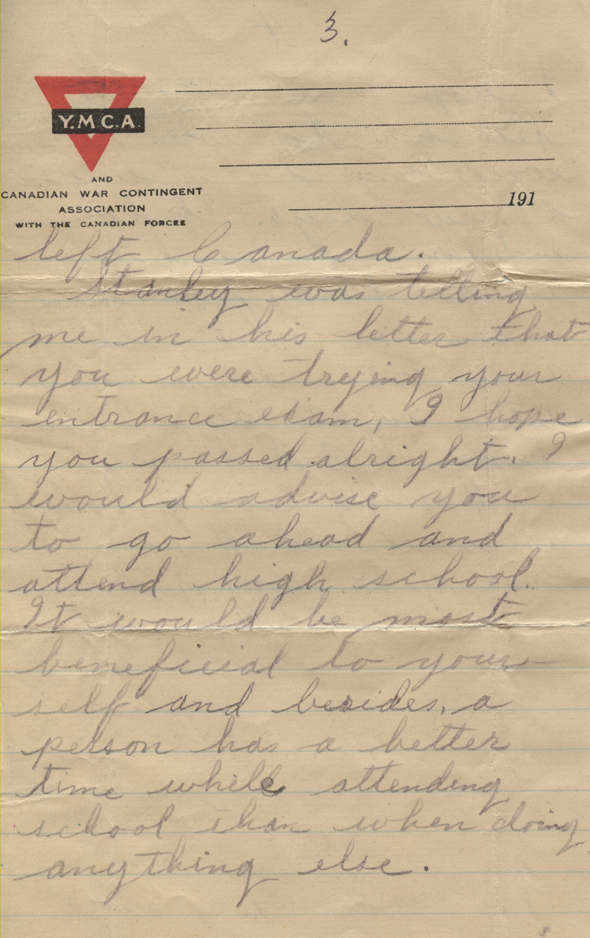 3.
Y.M.C.A.
AND
CANADIAN WAR CONTINGENT
ASSOCIATION
WITH THE CANADIAN FORCES
191
left Canada.
Stanley was telling
me in his letter that
you were trying your
entrance exam, I hope
you passed alright. I
would advise you
to go ahead and
attend high school.
It would be most
beneficial to your-
self and besides, a
person has a better
time while attending
school than when doing
anything else.